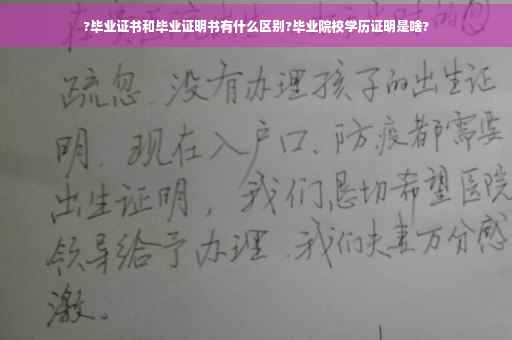 ?毕业证书和毕业证明书有什么区别?毕业院校学历证明是啥?
疏忽.没有办理孩子的出生证
明.现在入户口、防疫都需要
出生证明，我们恳切希望医院
领导给予办理.我们夫妻万分感
激。